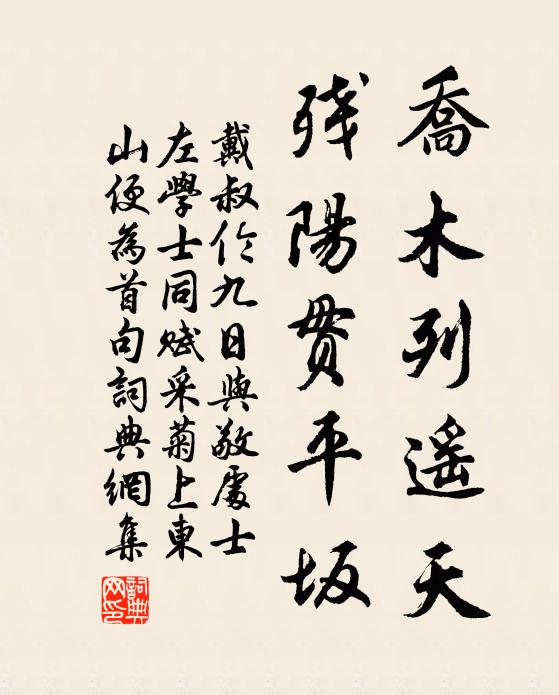 喬木列遥天
残陽貫平坂
戴叔伦九日與敬處士
左學士同赋采菊上東
山便為首句詞典網集
詞典网印